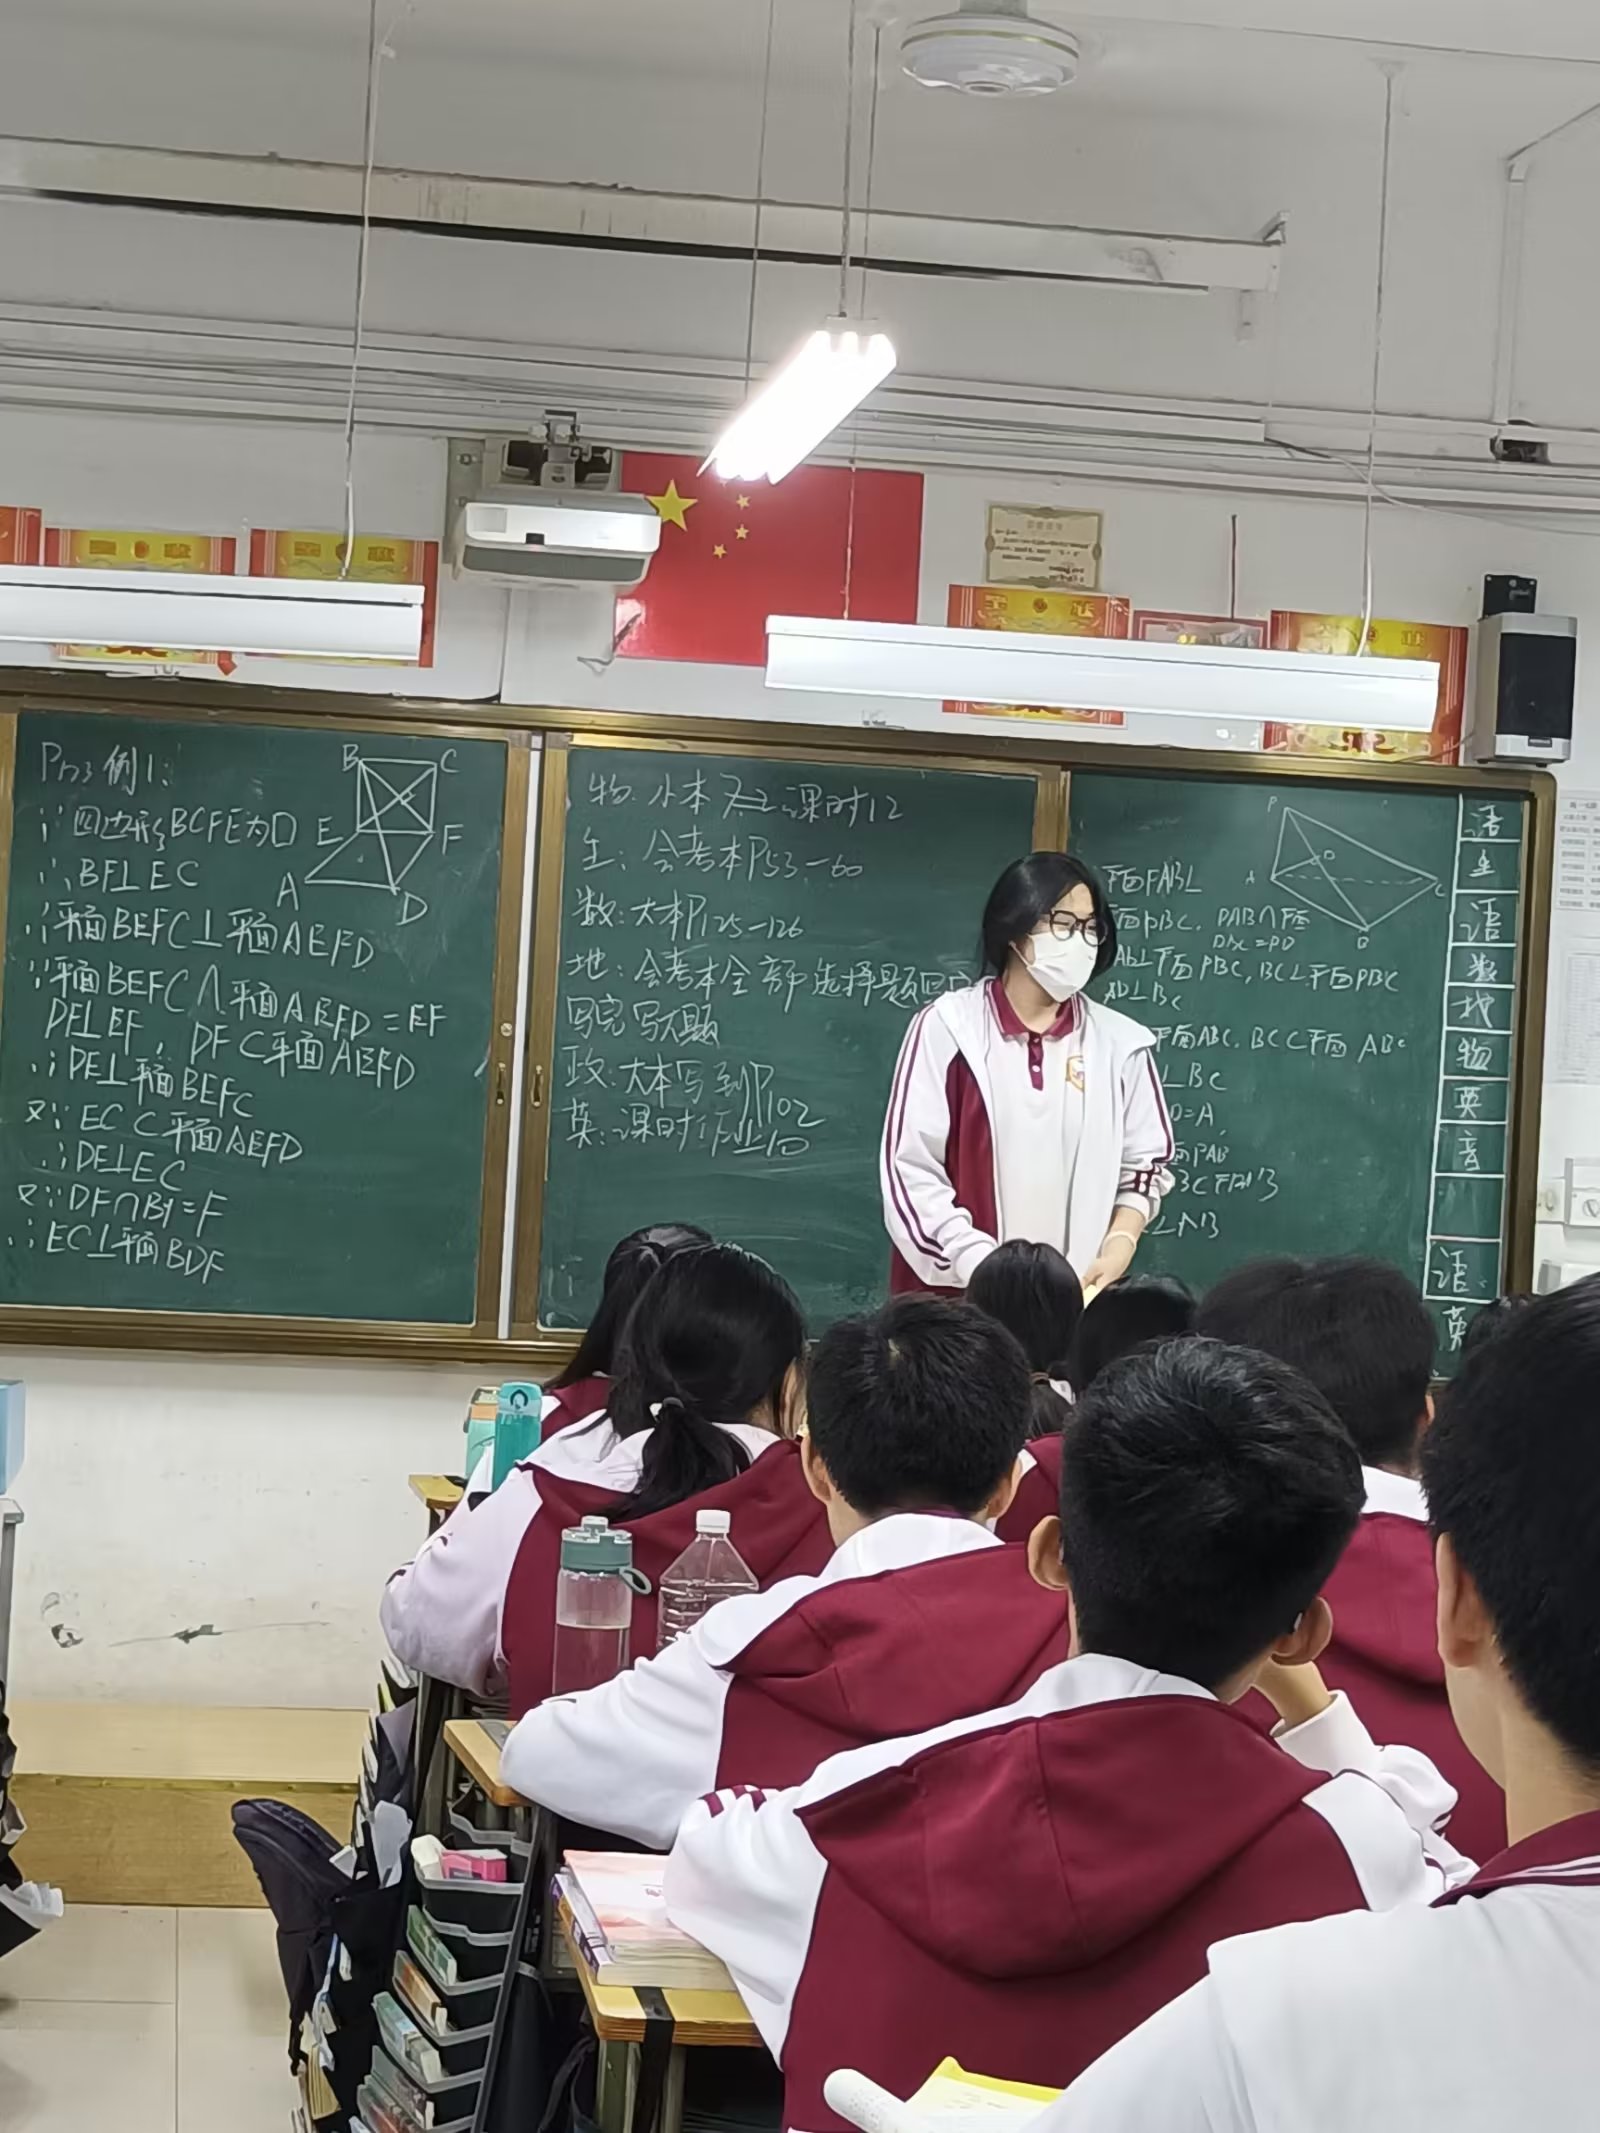 例1:
B C
∵四边形BCFE为口 E F
∴BF⊥EC
A D
∴平面BEFC⊥平面AEFD
∵平面BEFC∩平面AEFD=EF
DF⊥EF, DF⊂平面AEFD
∴DF⊥平面BEFC
又∵EC⊂平面AEFD
∴DF⊥EC
又∵DF∩BF=F
∴EC⊥平面BDF
物:小本 课时12
生:会考本P53-60
数:大本P125-126
地:会考本全部选择题
写完写大题
政:大本写到P102
英:课时作业10
P
D
A C
B
平面PAB⊥
面PBC. PAB∩平面
PBC=PB
AD⊥平面PBC, BC⊂平面PBC
AD⊥BC
平面ABC. BC⊂平面ABC
⊥BC
D=A,
面PAB
⊥AB
语
生
语
数
地
物
英
音
语
英